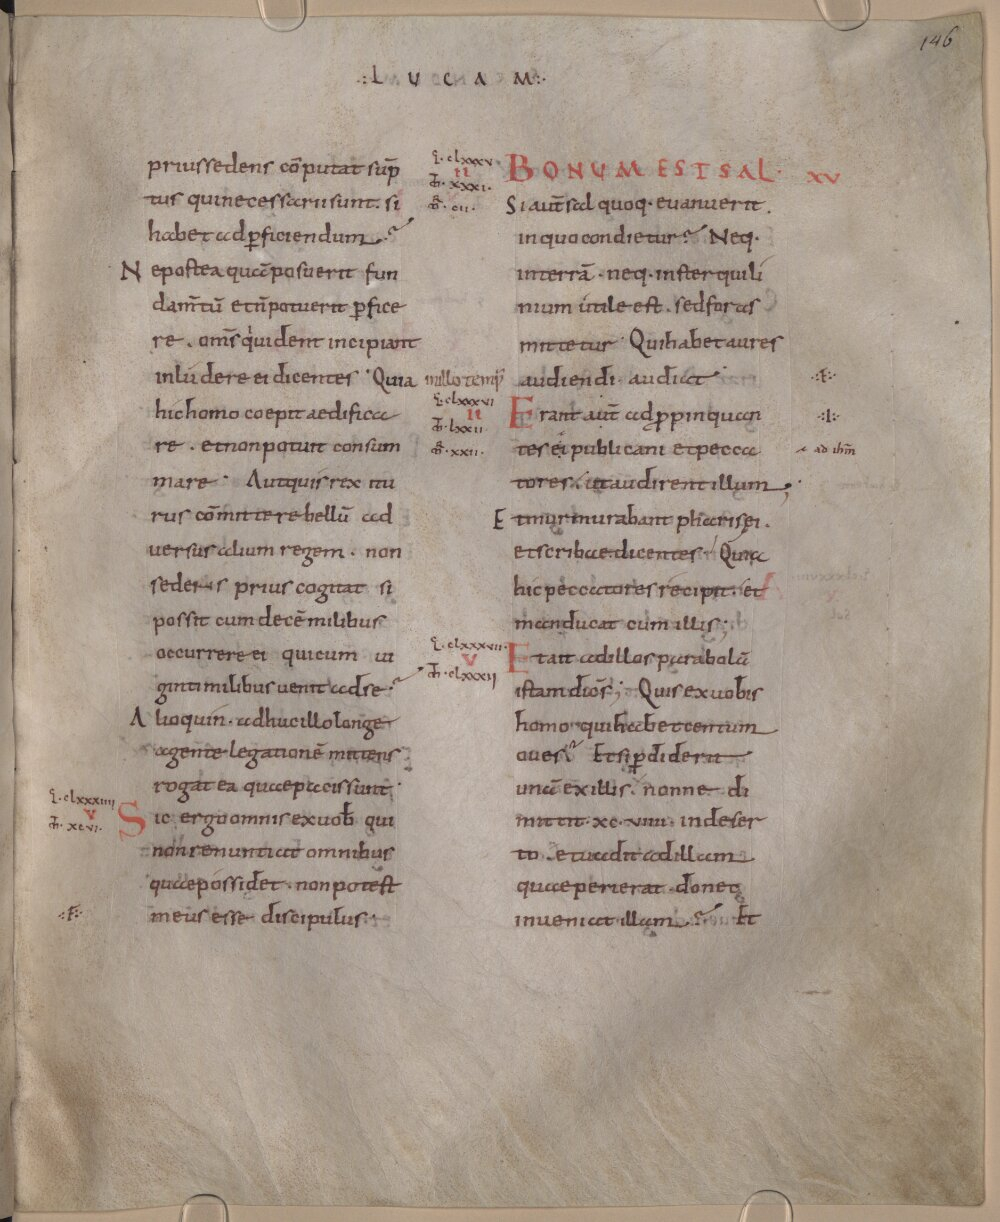 146
.:L U C A M:.
prius sedens cō putat sūp
tus qui necessarii sunt. si
habet ad ꝑficiendum.
Ne postea quā posuerit fun
dam̄tū et n̄ potuerit ꝑfice
re. om̄s qui uident incipiant
inludere ei dicentes. Quia
hic homo coepit aedifica
re. et non potuit consum
mare. Aut quis rex itu
rus cōmittere bellū ad
uersus alium regem. non
sedens prius cogitat si
possit cum decē milibus
occurrere ei qui cum ui
ginti milibus uenit ad se.
Alioquin. adhuc illo longe
agente legationē mittens
rogat ea quae pacis sunt.
Sic ergo omnis ex uob̄ qui
non renuntiat omnibus
quae possidet. non potest
meus esse discipulus.
clxxxiiii
v
xcvi.
:F:
clxxxv
ii
xxxi.
cii.
in illo temp̄
clxxxvi
ii
lxxii.
xxii.
clxxxvii
v
clxxxii
BONUM EST SAL. XV
Si aut̄ sal quoq· euanuerit.
in quo condietur? Neq·
in terrā. neq· in sterquili
nium utile est. sed foras
mittetur. Qui habet aures
audiendi. audiat. :F:
Erant aut̄ adꝓpinquan :I:
tes ei publicani et pecca ad ih̄m
tores. ut audirent illum;
Et murmurabant pharisei.
et scribae dicentes. Quia
hic peccatores recipit. et
manducat cum illis;
Et ait ad illos parabolā
istam dicēs; Quis ex uobis
homo qui habet centum
oues? Et si ꝑdiderit
unā ex illis. nonne di
mittit. xc. viiii. in deser
to. et uadit ad illam
quae perierat. donec
inueniat illam? Et